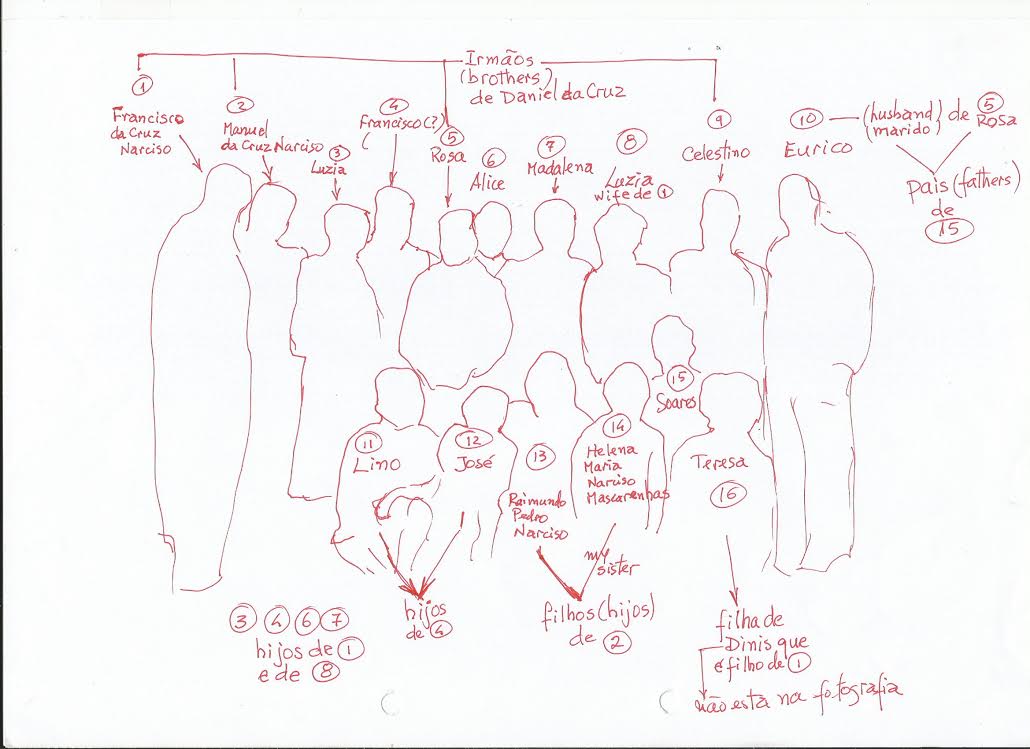 Irmãos
(brothers)
de Daniel da Cruz
1
Francisco
da Cruz
Narciso
2
Manuel
da Cruz Narciso
3
Luzia
4
Francisco(?)
(
5
Rosa
6
Alice
7
Madalena
8
Luzia
wife de 1
9
Celestino
10
Eurico
(husband) de 5
(marido) Rosa
pais (fathers)
de
15
11
Lino
12
José
13
Raimundo
Pedro
Narciso
14
Helena
Maria
Narciso
Mascarenhas
15
Soares
Teresa
16
my
sister
3 4 6 7
hijos de 1
e de 8
hijos
de 4
filhos (hijos)
de 2
filha de
Dinis que
é filho de 1
não está na fotografia